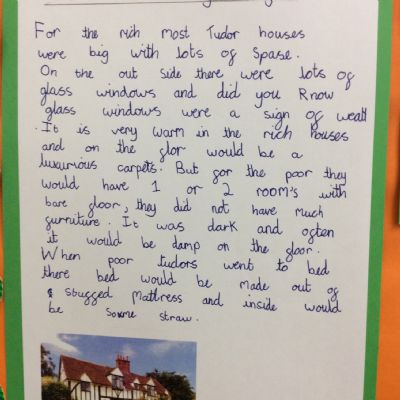 For the rich most Tudor houses
were big with lots of Spase.
On the out side there were lots of
glass windows and did you know
glass windows were a sign of wealt
.It is very warm in the rich houses
and on the flor would be a
luxurious carpets. But for the poor they
would have 1 or 2 room's with
bare floor, they did not have much
furniture. It was dark and often
it would be damp on the floor.
When poor tudors went to bed
there bed would be made out of
a stuffed mattress and inside would
be some straw.